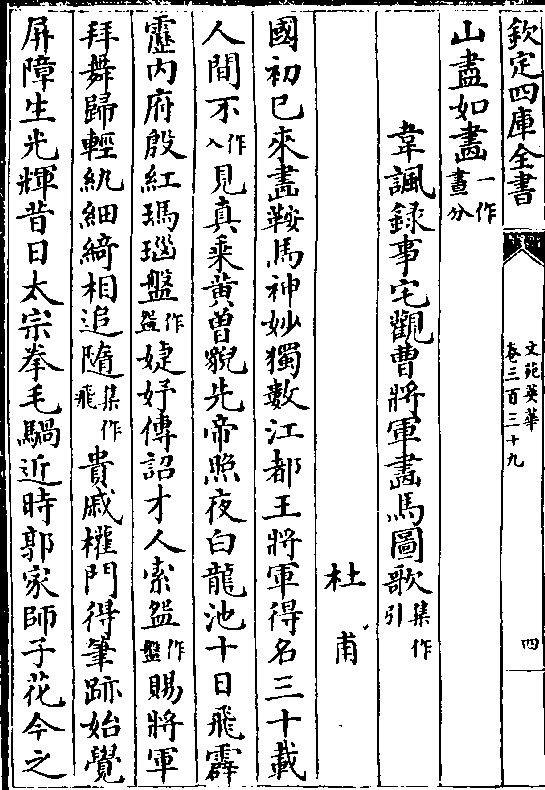 欽定四庫全書
文苑英華
卷三百三十九
四
山盡如畫一作畫分
韋諷録事宅觀曹將軍畫馬圖歌集作引
杜甫
國初已來畫鞍馬神妙獨數江都王將軍得名三十載
人間不作入見真乘黄曽貌先帝照夜白龍池十日飛霹
靂内府殷紅瑪瑙盤作盌婕妤傳詔才人索盌作盤賜將軍
拜舞歸輕紈細綺相追隨集作飛貴戚權門得筆跡始覺
屏障生光輝昔日太宗拳毛騧近時郭家師子花今之